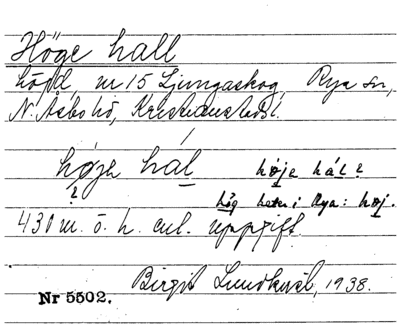 Höge hall
höjd, m 15 Ljungaskog, Rya sn,
N. Åsbo hd, Kristianstads l.
høje hál høje hál?
?
hög heter i Rya: høj.
430 m. ö. h. enl. uppgift.
Birgit Lundkvist, 1938.
Nr 5502.